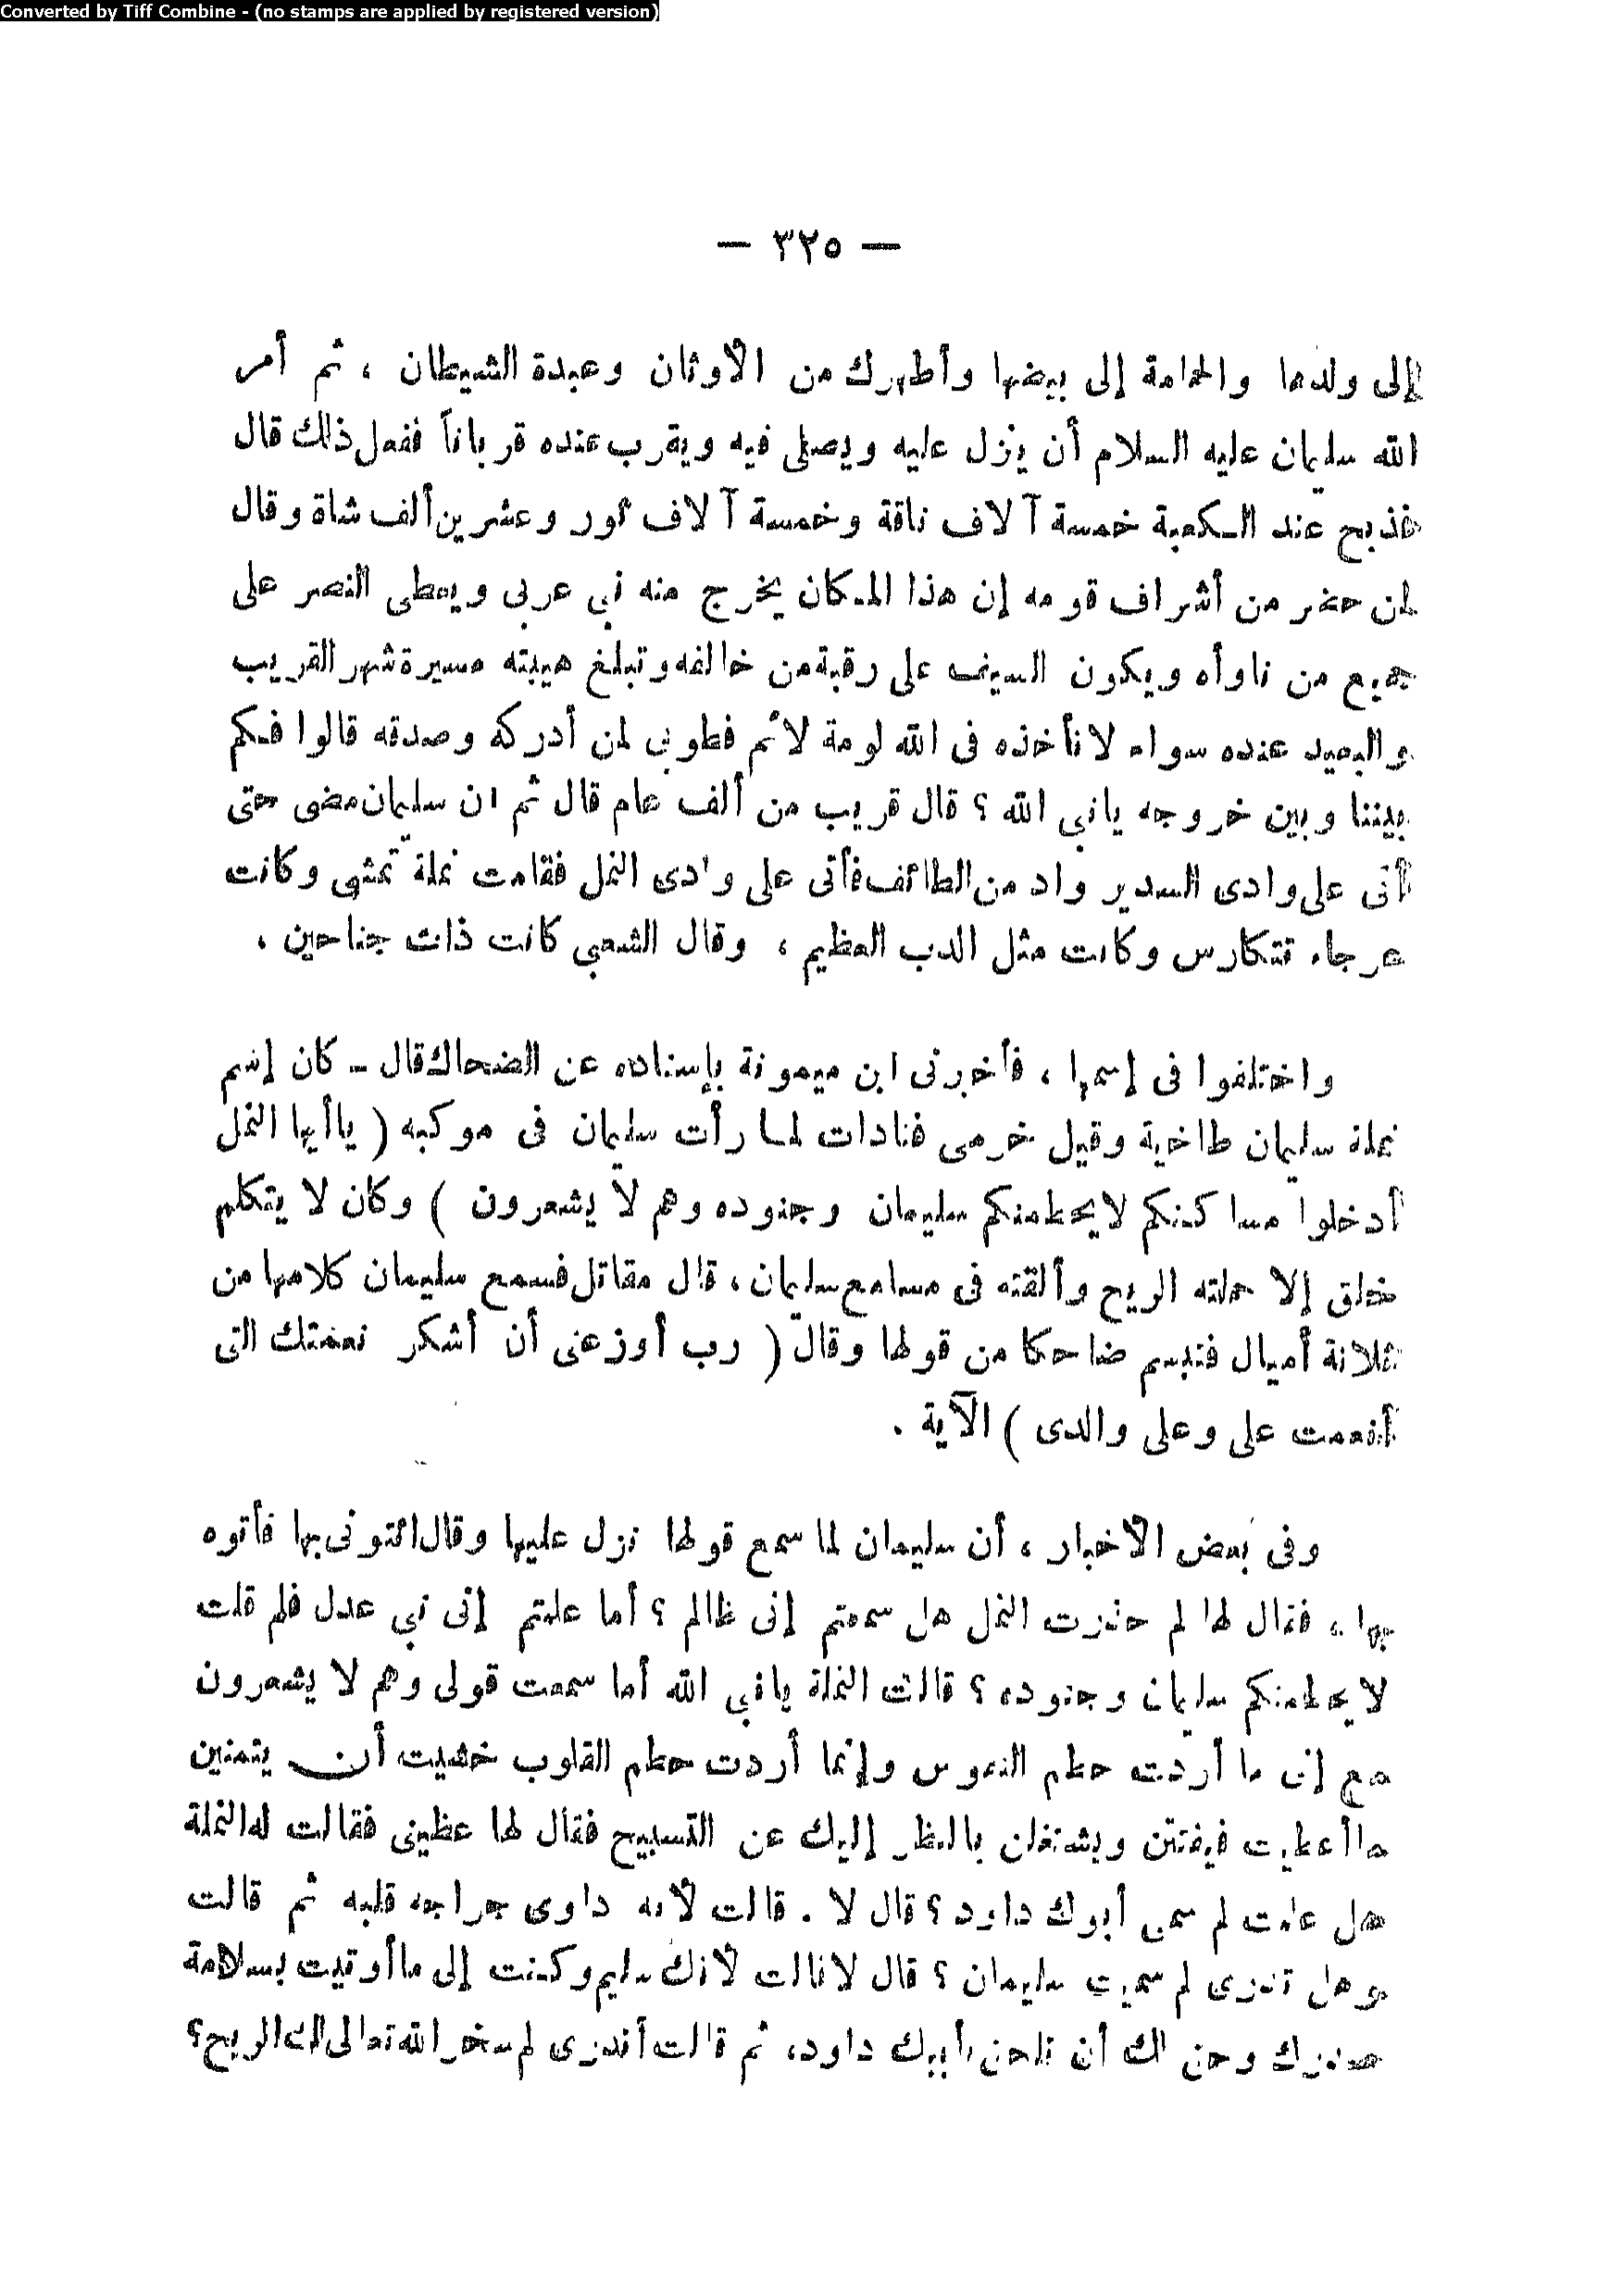 Converted by Tiff Combine - (no stamps are applied by registered version)
— ٣٢٥ —
إلى ولدها والحمامة إلى بيضها وأطهرك من الأوثان وعبدة الشيطان ، ثم أمر
الله سليمان عليه السلام أن ينزل عليه ويصلى فيه ويقرب عنده قرباناً ففعل ذلك قال
فذبح عند الكعبة خمسة آلاف ناقة وخمسة آلاف ثور وعشرين ألف شاة وقال
لمن حضر من أشراف قومه إن هذا المكان يخرج منه نبي عربى ويعطى النصر على
جميع من ناوأه ويكون السيف على رقبة من خالفه وتبلغ هيبته مسيرة شهر القريب
والبعيد عنده سواء لا تأخذه فى الله لومة لائم فطوبى لمن أدركه وصدقه قالوا فكم
بيننا وبين خروجه يانبي الله ؟ قال قريب من ألف عام قال ثم ان سليمان مضى حتى
أتى على وادى السدير واد من الطائف فأتى على وادى النمل فقامت نملة تمشى وكانت
عرجاء تتكارس وكانت مثل الدب العظيم ، وقال الشعبي كانت ذات جناحين .
واختلفوا فى إسمها ، فأخبرنى ابن ميمونة بإسناده عن الضحاك قال - كان إسم
نملة سليمان طاخية وقيل خرمى فنادات لما رأت سليمان فى موكبه ( ياأيها النمل
أدخلوا مساكنكم لايحطمنكم سليمان وجنوده وهم لا يشعرون ) وكان لا يتكلم
خلق إلا حملته الريح وألقته فى مسامع سليمان ، قال مقاتل فسمع سليمان كلامها من
ثلاثة أميال فتبسم ضاحكا من قولها وقال ( رب أوزعنى أن أشكر نعمتك التى
أنعمت على وعلى والدى ) الآية .
وفى بعض الأخبار ، أن سليمان لما سمع قولها نزل عليها وقال ائتونى بها فأتوه
بها ، فقال لها لم حذرت النمل هل سمعتم إنى ظالم ؟ أما علمتم إنى نبي عدل فلم قلت
لا يحطمنكم سليمان وجنوده ؟ قالت النملة يانبي الله أما سمعت قولى وهم لا يشعرون
مع إنى ما أردت حطم النفوس وإنما أردت حطم القلوب خشيت أن يتمنين
ماأعطيت فيفتتن ويشتغلن بالنظر إليك عن التسبيح فقال لها عظينى فقالت له النملة
هل علمت لم سمى أبوك داود ؟ قال لا . قالت لأنه داوى جراحه قلبه ثم قالت
وهل تدرى لم سميت سليمان ؟ قال لا قالت لأنك سليم وكنت إلى ماأوتيت بسلامة
صدرك وحق لك أن تلحق بأبيك داود، ثم قالت أتدرى لم سخر الله تعالى لك الريح؟